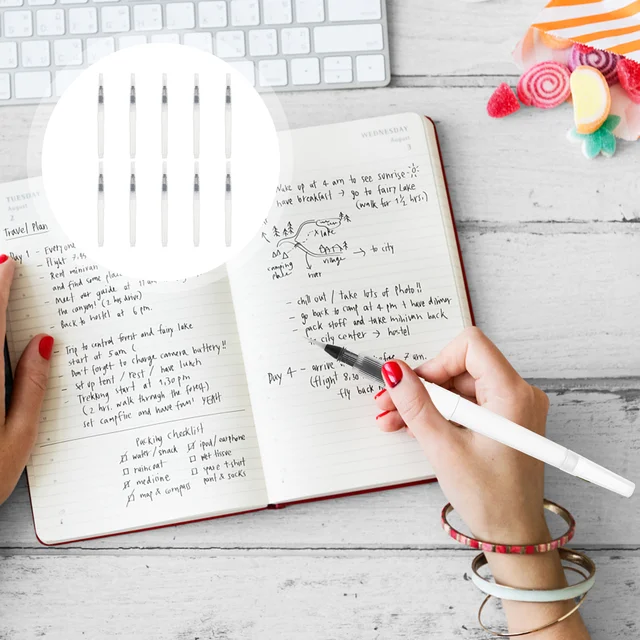 TUESDAY
August
2
Travel Plan
Day 1 - Everyone
- Flight
- Rent minivan
and find some
- Meet our guide at 11 am
the canyon! (2 hrs drive)
- Back to hostel at 6 pm.
- Trip to central forest and fairy lake
start at 5am
- Don't forget to charge camera battery!!
- Set up tent / rest / have lunch
- Trekking start at 1.30 pm
(2 hrs. walk through the forest)
- set campfire and have fun! YEAH
Packing Checklist
water / snack
raincoat
medicine
map & compass
ipod / earphone
wet tissue
spare t-shirt
pant & socks
WEDNESDAY
August
3
wake up at 4 am to see sunrise
have breakfast → go to Fairy Lake
(walk for 1½ hrs.)
lake
camping
place
river
village
→ to city
- chill out / take lots of photo!!
- go back to camp at 4 pm & have dinner
- pack stuff and take minivan back
to city center → hostel
Day 4 - arrive
(flight 8.30
fly back